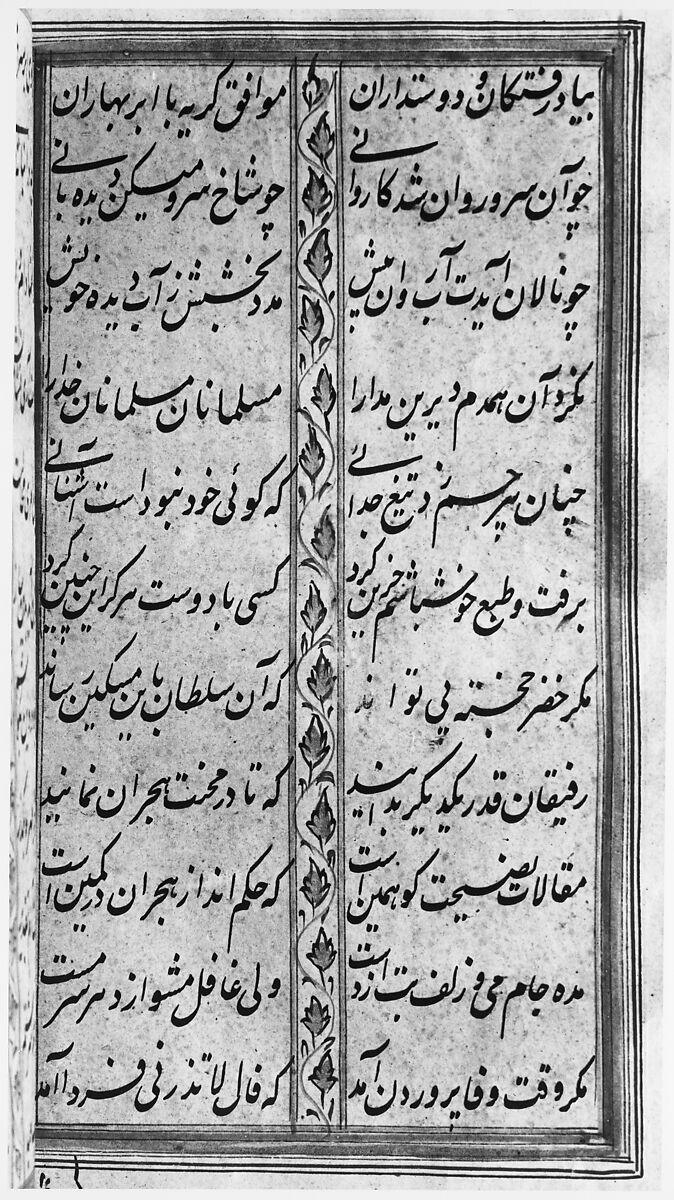 بیاد رفتگان و دوستداران موافق گریه با ابر بهاران
چو آن سرو روان شد کاروانی چو شاخ سرو میکن دیده بانی
چو نالان آیدت آب روان پیش مدد بخشش ز آب دیده خویش
نکرد آن همدم دیرین مدارا مسلمانان مسلمانان خدارا
چنان بیرحم زد تیغ جدائی که گوئی خود نبود است آشنائی
برفت و طبع خوشباشم حزین کرد کسی با دوست هرگز این چنین کرد
مگر خضر خجسته پی تواند که آن سلطان باین مسکین رساند
رفیقان قدر یکدیگر بدانید که تا در محنت هجران نمانید
مقالات نصیحت گو همین است که حکم انداز هجران در کمین است
مده جام می و زلف بت از دست ولی غافل مشو از دهر سرمست
مگر وقت وفا پروردن آمد که فال لا تذرنی فردا آمد